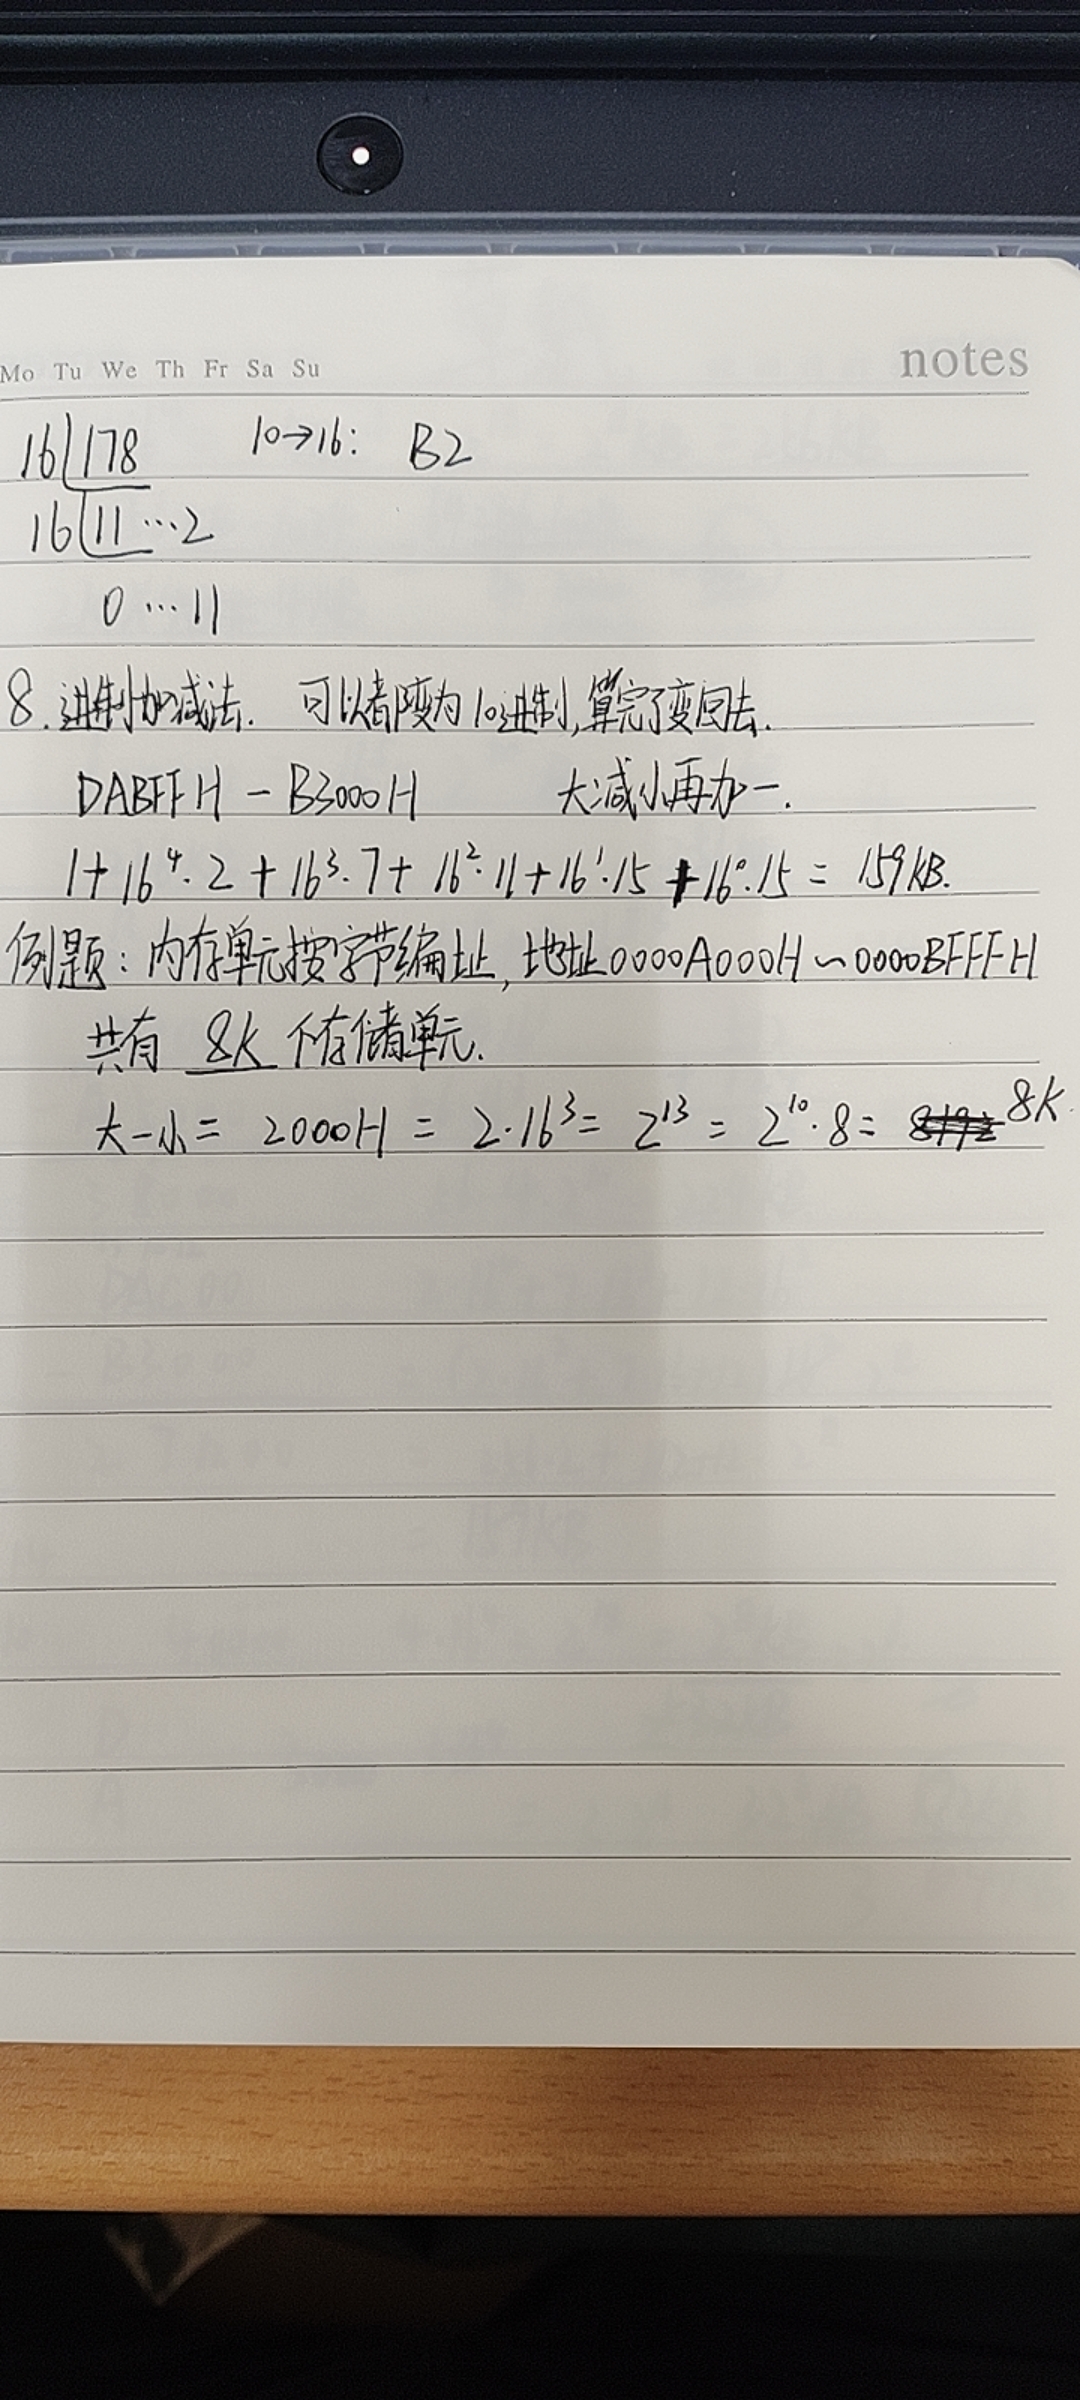 Mo Tu We Th Fr Sa Su notes
16 178 10→16: B2
16 11 …2
0 …11
8. 进制加减法. 可以都变为10进制,算完了变回去.
DABFFH - B3000H 大减小再加一.
1+16⁴·2+16³·7+16²·11+16¹·15+16⁰·15 = 159KB.
例题: 内存单元按字节编址, 地址0000A000H～0000BFFFH
共有 8K 个存储单元.
大-小 = 2000H = 2·16³ = 2¹³ = 2¹⁰·8 = 8K.